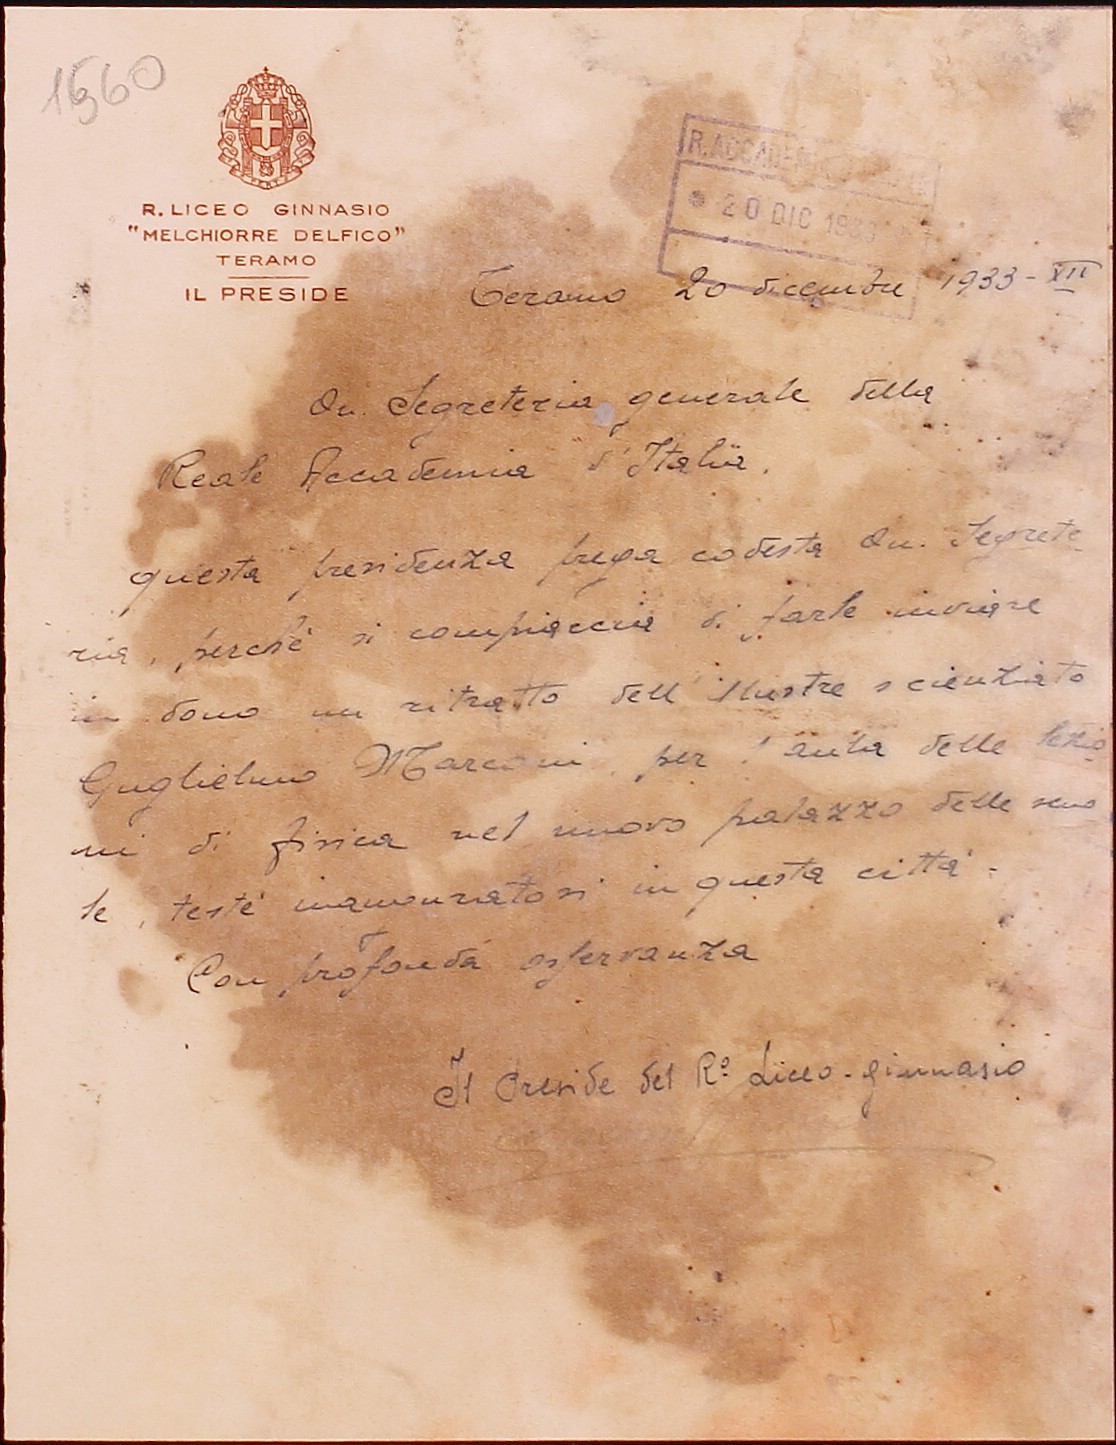 1560
R. LICEO GINNASIO
"MELCHIORRE DELFICO"
TERAMO
IL PRESIDE
R. ACCADEMIA
20 DIC 1933
Teramo 20 dicembre 1933-XII
On. Segreteria generale della
Reale Accademia d'Italia.
questa presidenza prega codesta On. Segrete
ria, perchè si compiaccia di farle inviare
in dono un ritratto dell'illustre scienziato
Guglielmo Marconi, per l'aula delle lezio
ni di fisica nel nuovo palazzo delle scuo
le, testè inauguratosi in questa città.
Con profonda osservanza
Il Preside del R.º Liceo-ginnasio